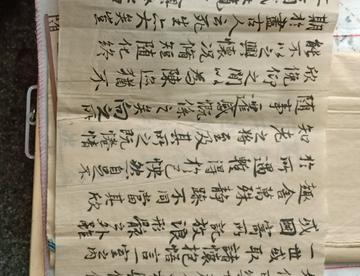 一世或取諸懷抱悟言一室之內
或因寄所託放浪形骸之外雖
趣舍萬殊靜躁不同當其欣
於所遇暫得於己怏然自足不
知老之將至及其所之既惓情
隨事遷感慨係之矣向之所
欣俛仰之間以為陳迹猶不
能不以之興懷況脩短隨化終
期於盡古人云死生亦大矣豈